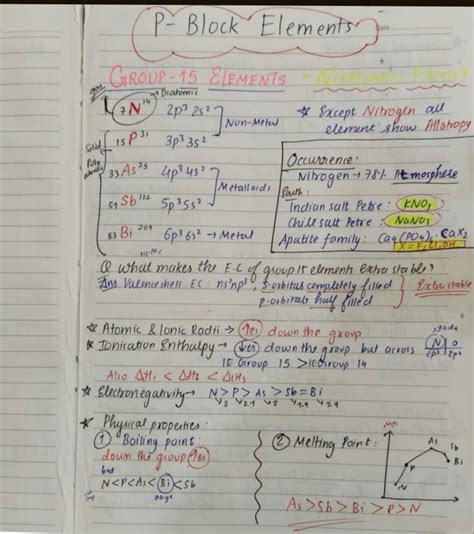 P-Block Elements
Date
GROUP-15 ELEMENTS - NITROGEN FAMILY
Diatomic
7N14 2p3 2s2
15P31 3p3 3s2
Non-Metal
Solid
Poly
33As75 4p3 4s2
51Sb122 5p3 5s2
Metalloids
83Bi209 6p3 6s2 → Metal
* Except Nitrogen all
element show Allotropy
Occurrence:
Nitrogen → 78% Atmosphere
Earth:
Indian salt Petre: KNO3
Chile salt Petre: NaNO3
Apatite family: Ca9(PO4)6·CaX2
X = F, Cl, OH
Q what makes the E.C of group 15 elements extra stable?
Ans Valence shell EC: ns2np3, S-orbitals completely filled
p-orbitals half filled
Extra stable
* Atomic & Ionic Radii → ↑es down the group
* Ionisation Enthalpy → ↓es down the group but across
N O
2p3 2p4
IE Group 15 > IE Group 14
Also ΔiH1 < ΔiH2 < ΔiH3
* Electronegativity → N > P > As > Sb = Bi
3 2.1 2 1.9 1.9
* Physical properties:
① Boiling point:
down the group ↑es
but
N<P<As<Bi<Sb
② Melting Point:
MPt
N
P
As
Sb
Bi
As > Sb > Bi > P > N